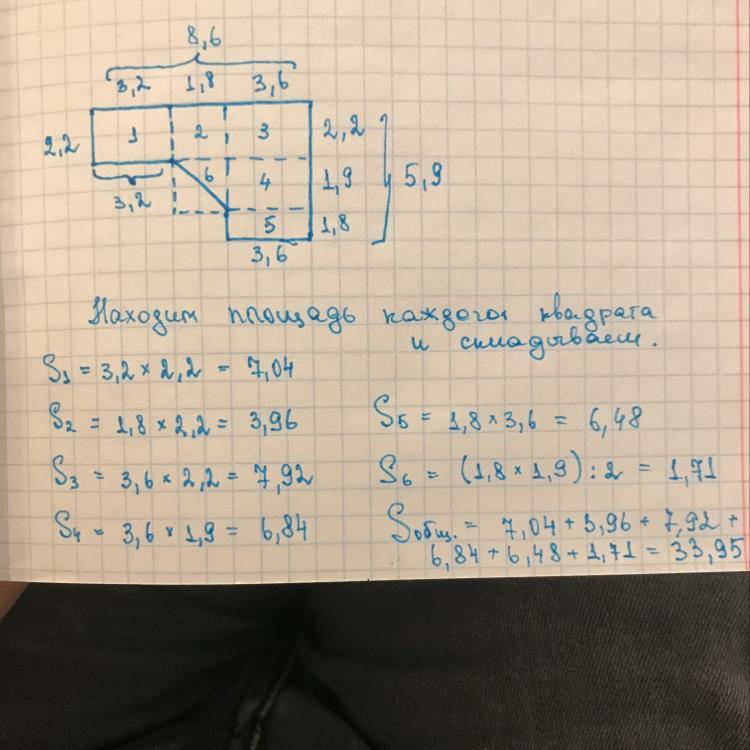 8,6
3,2 1,8 3,6
2,2 1 2 3 2,2
6 4 1,9 5,9
3,2
5 1,8
3,6
Находим площадь каждого квадрата
и складываем.
S1 = 3,2 × 2,2 = 7,04
S2 = 1,8 × 2,2 = 3,96
S3 = 3,6 × 2,2 = 7,92
S4 = 3,6 × 1,9 = 6,84
S5 = 1,8 × 3,6 = 6,48
S6 = (1,8 × 1,9) : 2 = 1,71
Sобщ. = 7,04 + 3,96 + 7,92 +
6,84 + 6,48 + 1,71 = 33,95